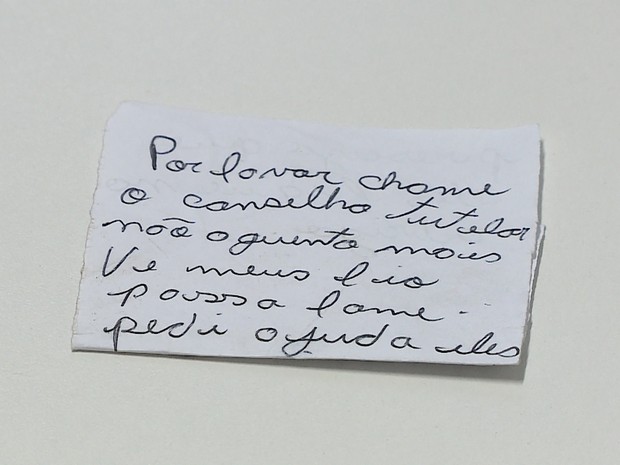 Por favor chame
o conselho tutelar
não aguento mais
Ve meus fio
passa fame.
pedi ajuda eles